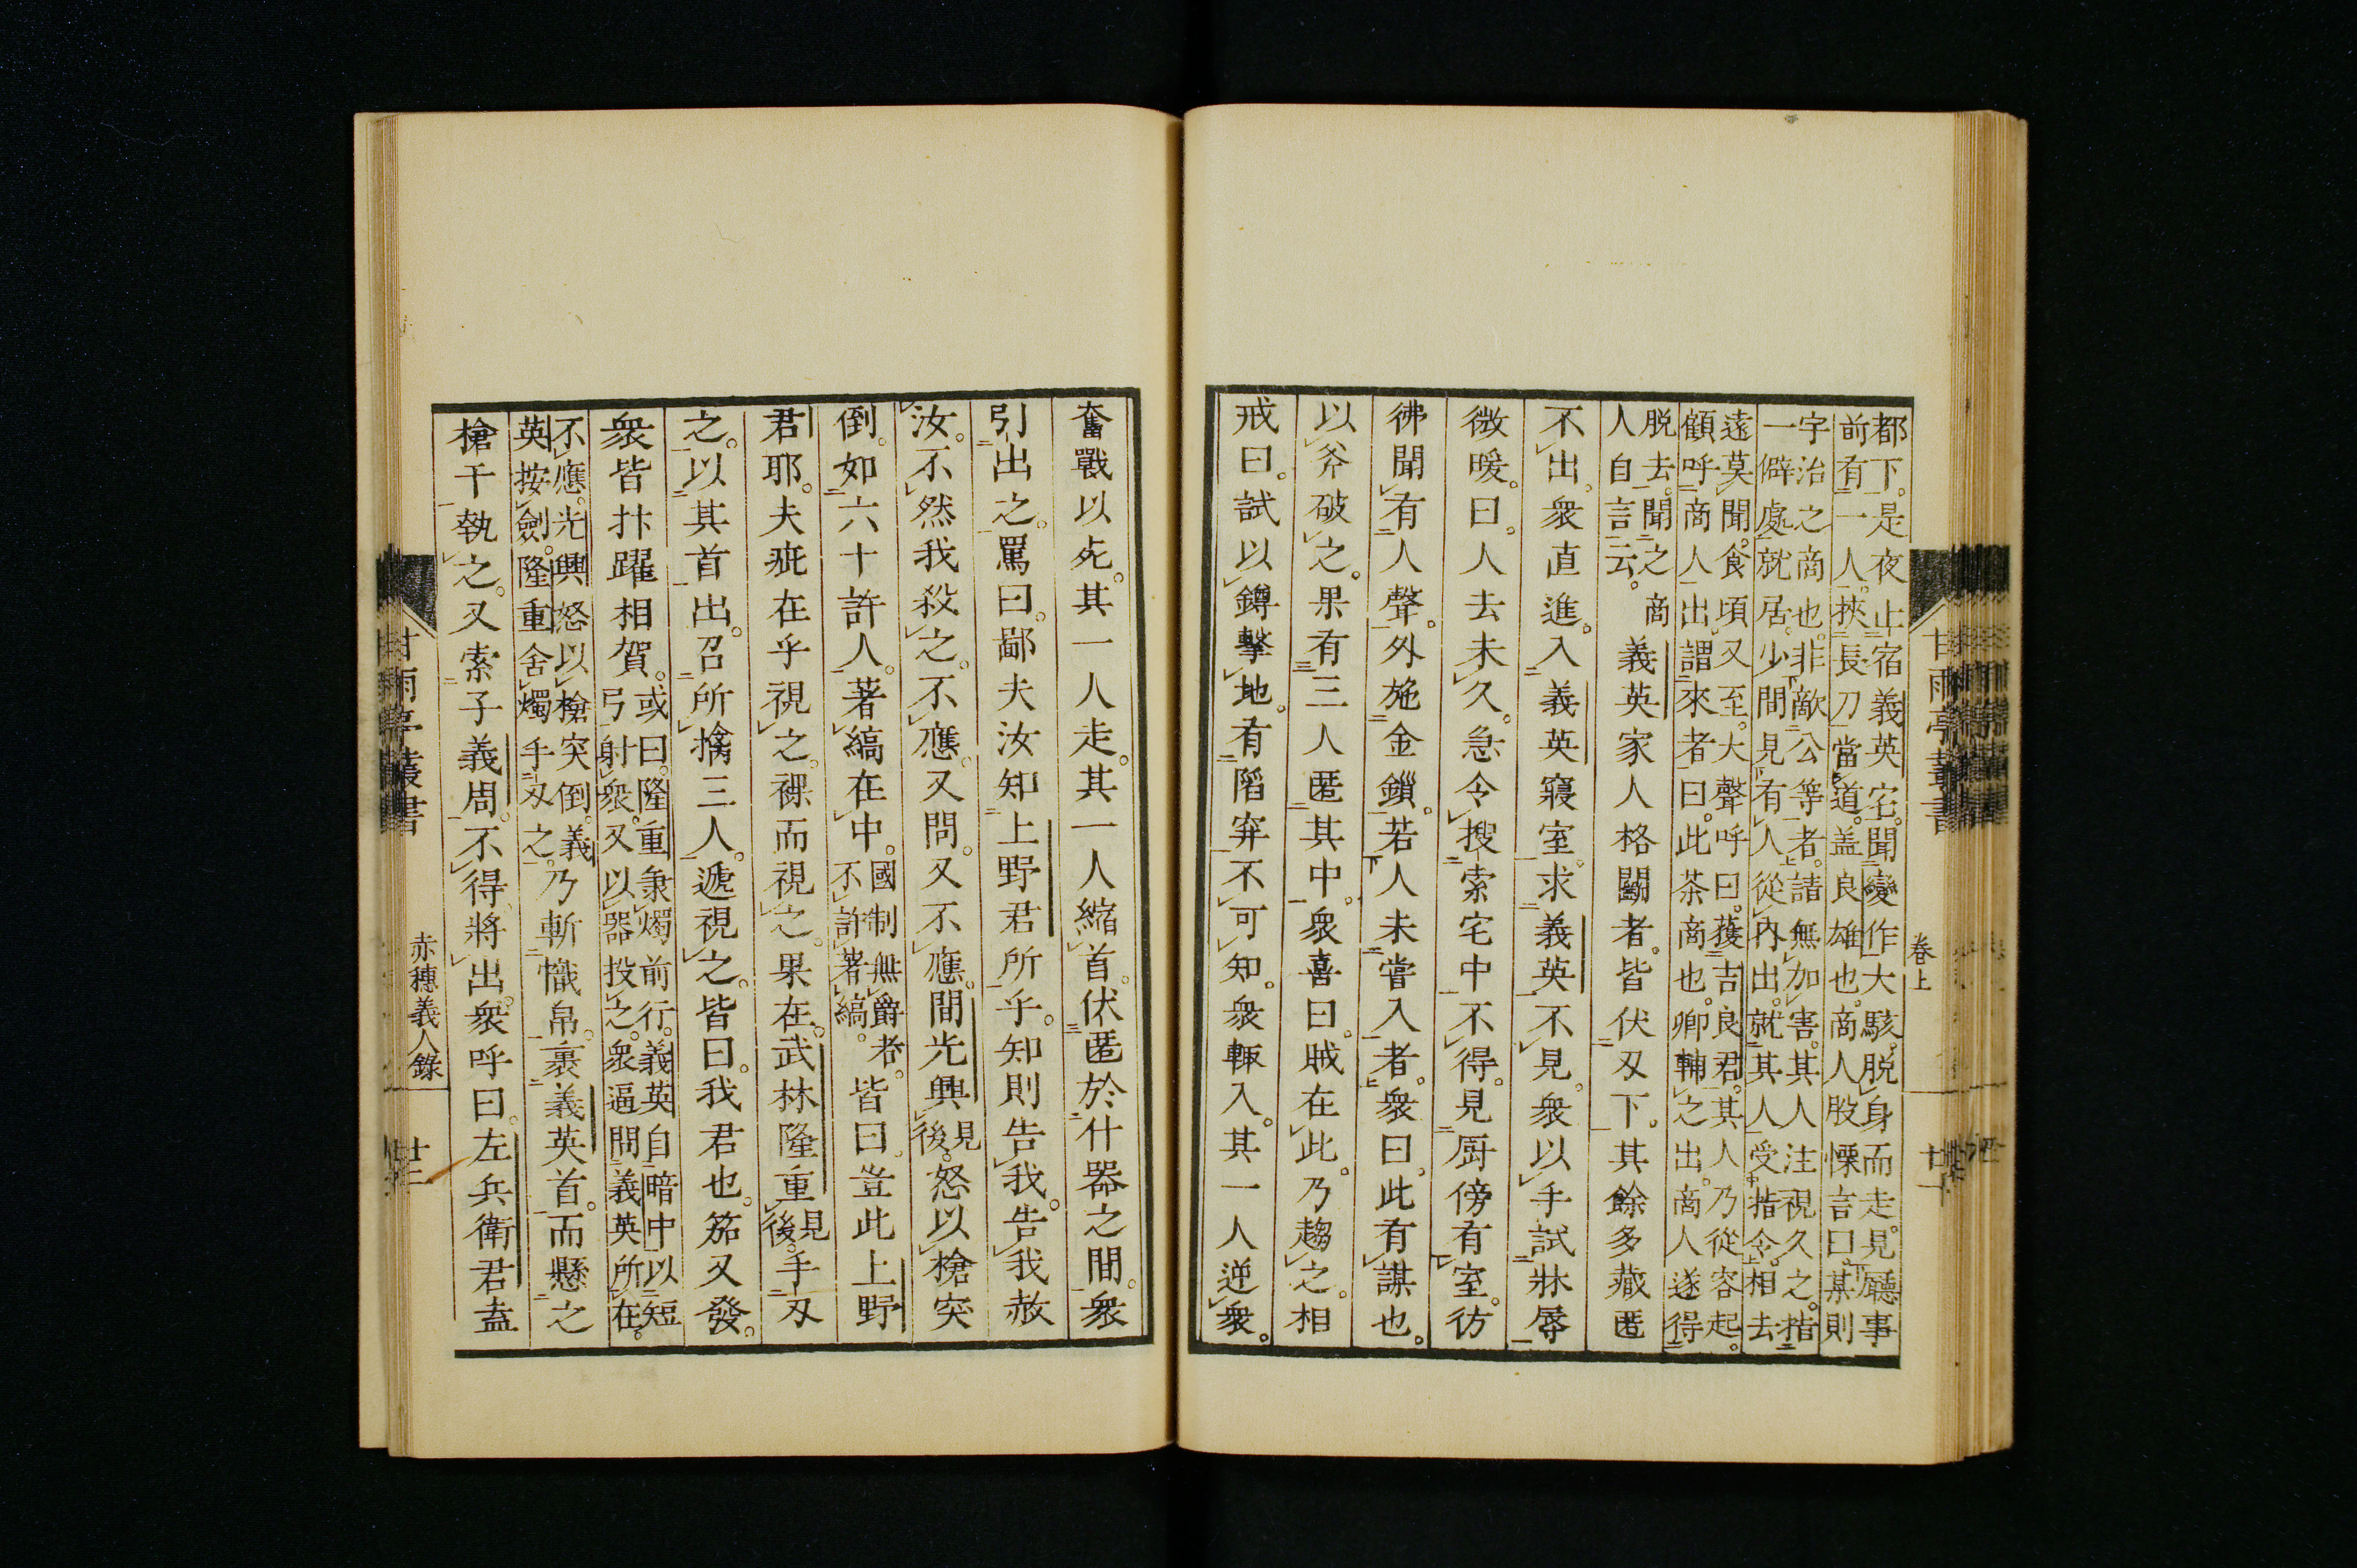 甘雨亭叢書
卷上
廿一
都下。是夜止宿義英宅。聞變作大駭。脱身而走。見廳事
前有一人。挾長刀當道。盖良雄也。商人股慄言曰。某則
宇治之商也。非敵公等者。請無加害。其人注視久之。指
一僻處就居。少間見有人從内出。就其人受指令。相去
遠莫聞。食頃又至。大聲呼曰。獲吉良君。其人乃從容起。
顧呼商人出。謂來者曰。此茶商也。卿輔之出。商人遂得
脱去。聞之商
人自言云。
義英家人格鬭者。皆伏刄下。其餘多藏匿
不出。衆直進。入義英寢室。求義英不見。衆以手試牀辱
微暖。曰。人去未久。急令搜索宅中不得。見厨傍有室。彷
彿聞有人聲。外施金鎖。若人未嘗入者。衆曰。此有謀也。
以斧破之。果有三人匿其中。衆喜曰。賊在此。乃趨之。相
戒曰。試以鐏擊地。有陷穽不可知。衆輙入。其一人逆衆。
奮戰以死。其一人走。其一人縮首。伏匿於什器之間。衆
引出之。罵曰。鄙夫汝知上野君所乎。知則告我。告我赦
汝。不然我殺之。不應。又問。又不應。間光興見後。怒以槍突
倒。如六十許人。著縞在中。國制無爵者。不許著縞。皆曰。豈此上野
君耶。夫疵在乎視之。裸而視之。果在。武林隆重見後。手刄
之。以其首出。召所擒三人。遞視之。皆曰。我君也。笳又發。
衆皆抃躍相賀。或曰。隆重秉燭前行。義英自暗中以短
弓射衆。又以器投之。衆逼問義英所在。
不應。光興怒以槍突倒。義
英按劍。隆重舍燭手刄之。
乃斬幟帛。裹義英首。而懸之
槍干執之。又索子義周。不得將出。衆呼曰。左兵衛君盍
甘雨亭叢書
赤穗義人錄
廿二